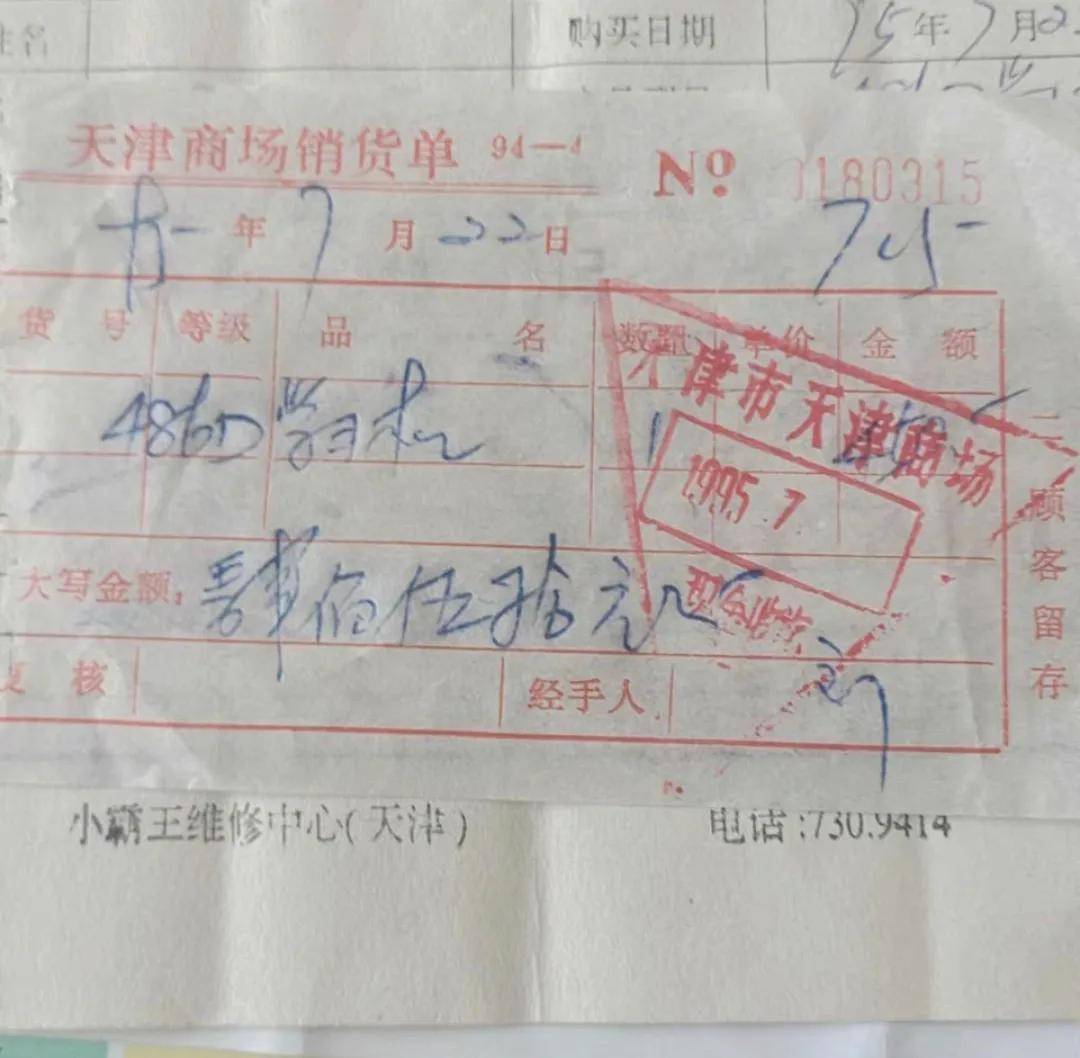 购买日期 95年7月2
天津商场销货单 94—4
No 0180315
年 7 月 22 日 745
货 号 等级 品 名 数量 单价 金 额
486D 学习机 1 450
天津市天津商场
1995.7
现金收讫
大写金额: 肆佰伍拾元
复 核 经手人 刘
二 顾客留存
小霸王维修中心(天津) 电话:730.9414